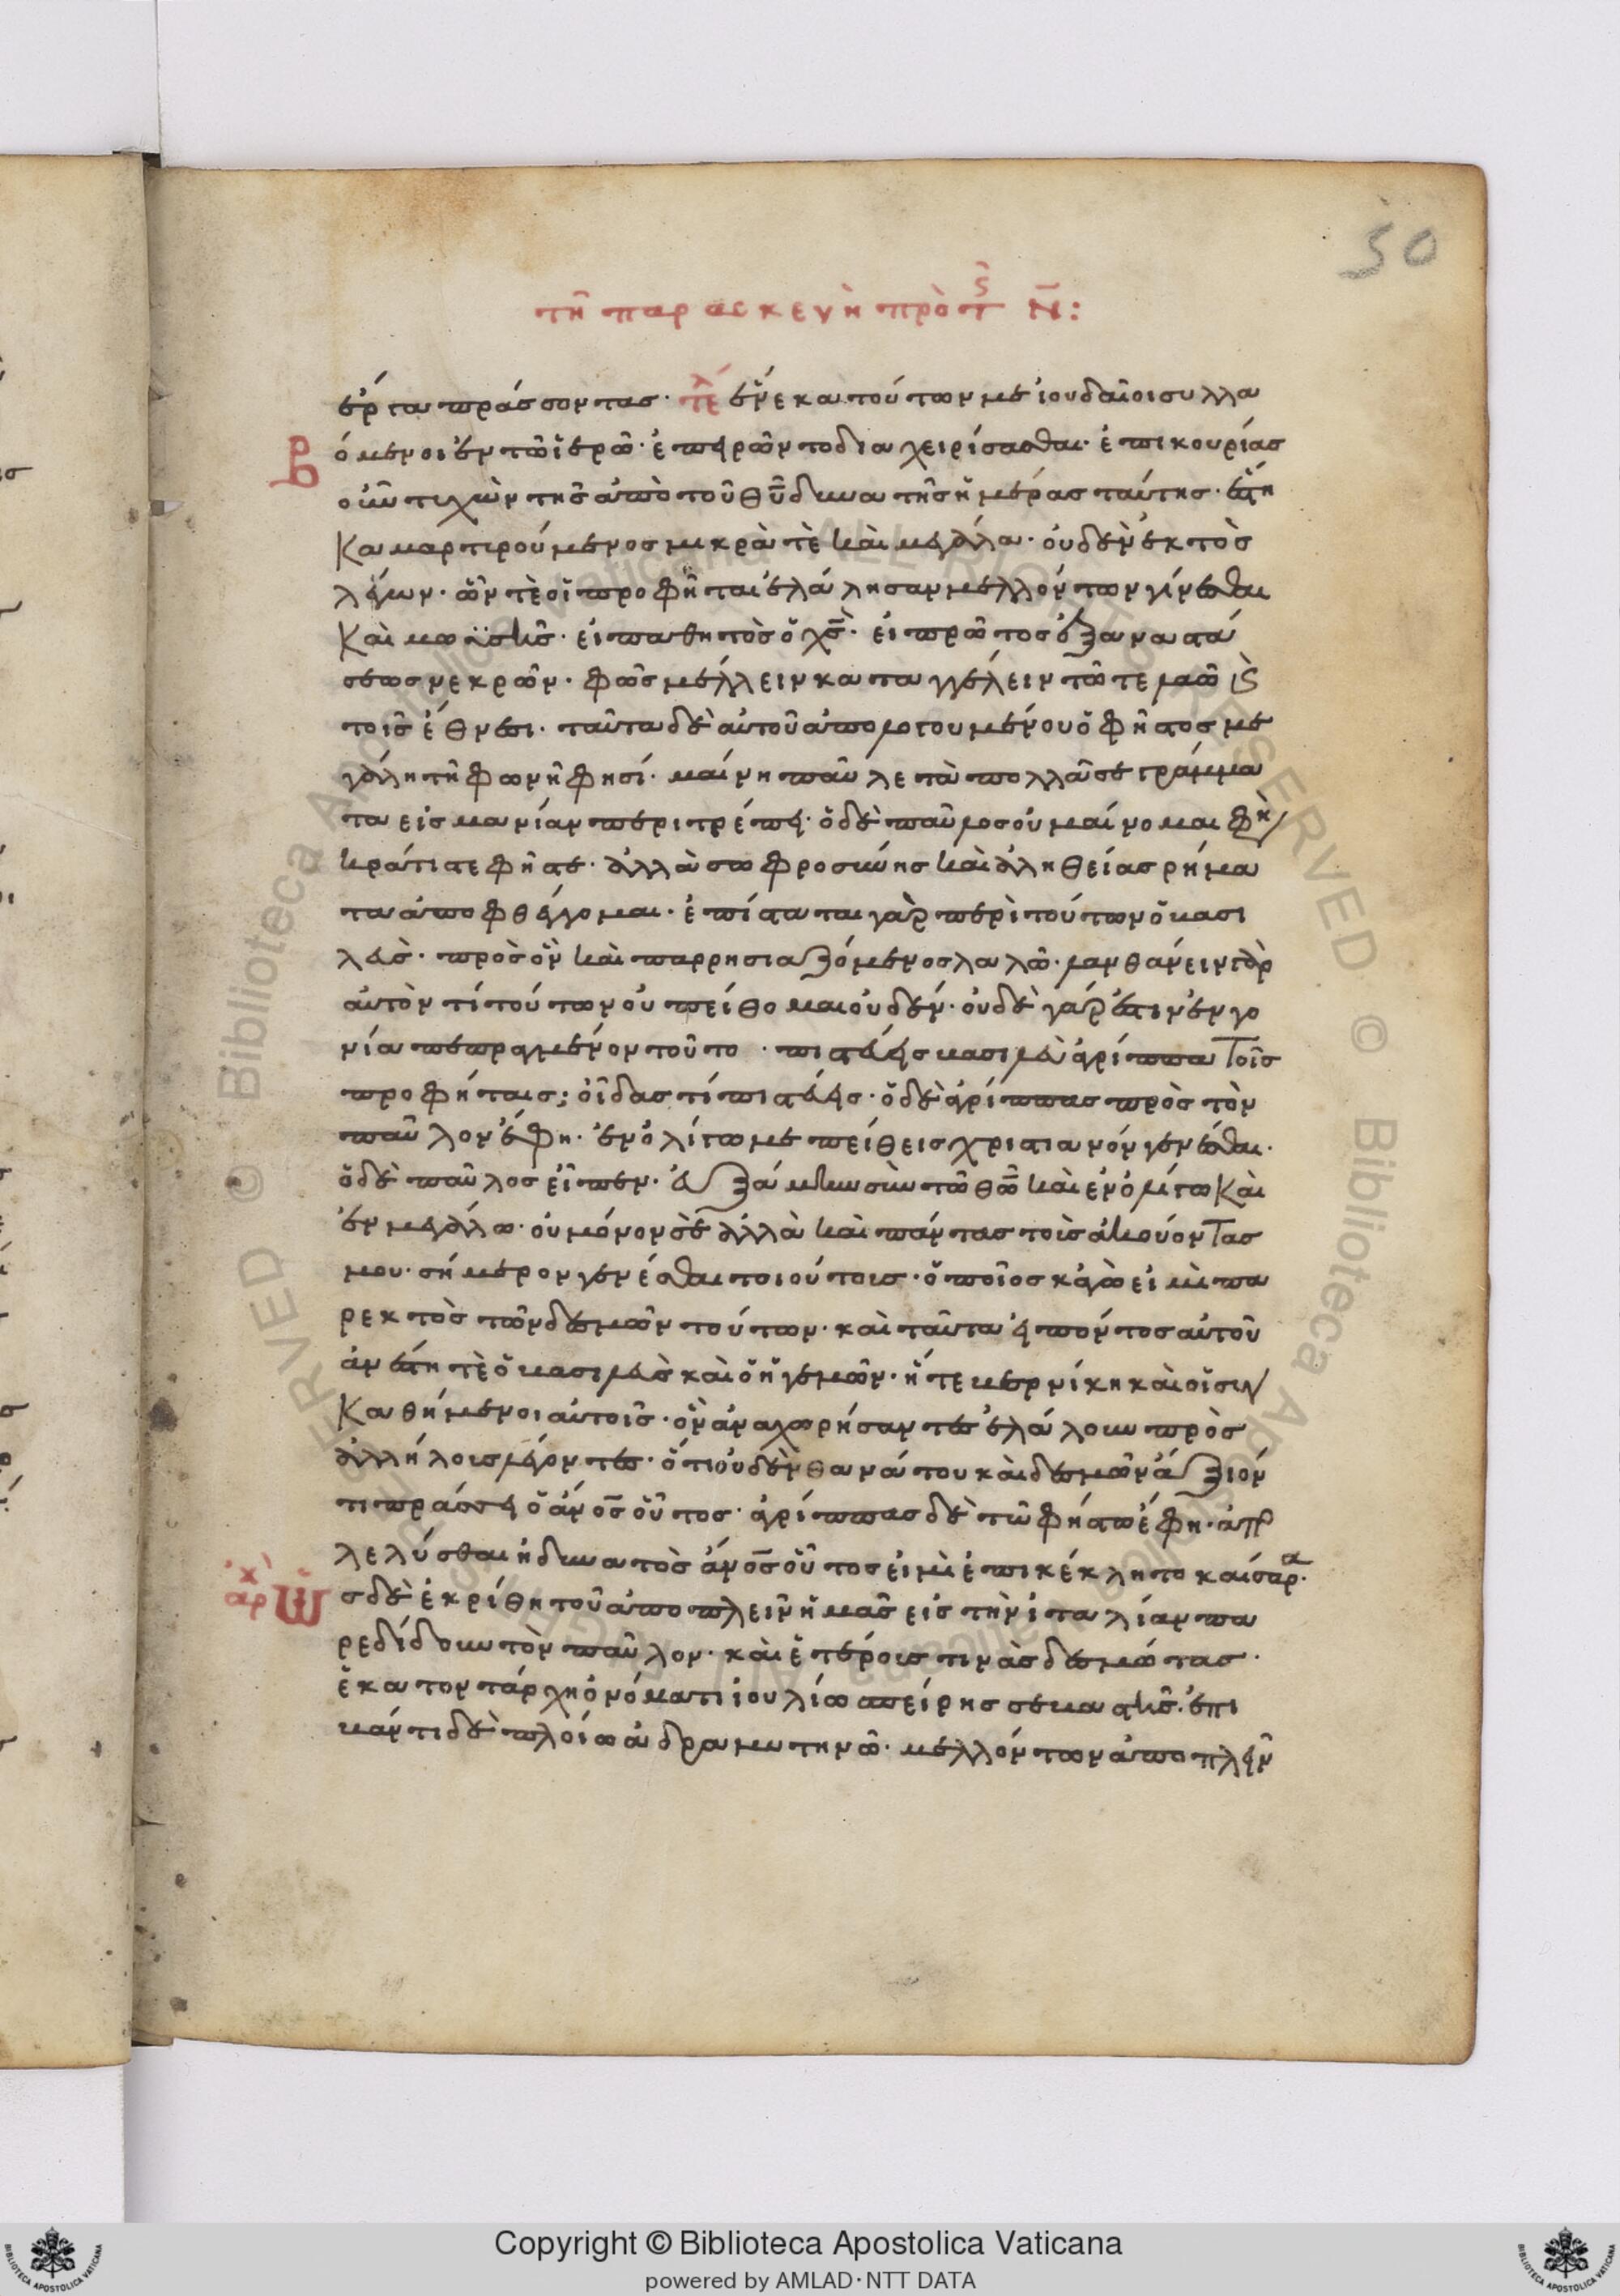 50
τῆ παρασκευῆ πρὸ τ̅ ς̑ Ν̅:
ἔργα πράσσοντας· τε̑λ ἕνεκα τούτων με ἰουδαῖοι συλλα
β ό μενοι ἐν τῶ ἱερῶ· ἐπειρῶντο διαχειρίσασθαι· ἐπικουρίας
οὖν τυχὼν τῆς ἀπὸ τοῦ θ̅υ̅ ἄχρι τῆς ἡμέρας ταύτης· ἕστη
κα μαρτυρούμενος μικρὰ τὲ καὶ μεγάλα· οὐδὲν ἐκτὸς
λέγων· ὧν τὲ οἱ προφῆται ἐλάλησαν μελλόντων γίνεσθαι
καὶ μωϋσῆς· εἰ παθητὸς ὁ χ̅ς̅· εἰ πρῶτος ἐξ ἀναστά
σεως νεκρῶν· φῶς μέλλειν καταγγέλειν τῶ τε λαῶ καὶ
τοῖς ἔθνεσι· ταῦτα δὲ αὐτοῦ ἀπολογουμένου ὁ φῆστος με
γάλη τῆ φωνῆ φησί· μαίνη παῦλε τὰ πολλά σε γράμμα
τα εἰς μανίαν περιτρέπει· ὁ δὲ παῦλος οὐ μαίνομαι φη
κράτιστε φῆστε· ἀλλὰ σωφροσύνης καὶ ἀληθείας ρήμα
τα ἀποφθέγγομαι· ἐπίσταται γὰρ περὶ τούτων ὁ βασι
λεὺς· πρὸς ὃν καὶ παρρησιαζόμενος λαλῶ· λανθάνειν γὰρ
αὐτὸν τί τούτων οὐ πείθομαι οὐδέν· οὐδὲ γάρ ἐστιν ἐν γω
νία πεπραγμένον τοῦτο · πιστεύεις βασιλεῦ ἀγρίππα τοῖς
προφήταις; οἶδας τί πιστεύεις· ὁ δὲ ἀγρίππας πρὸς τὸν
παῦλον ἔφη· ἐν ὀλίγω με πείθεις χριστιανόν γενέσθαι·
ὁ δὲ παῦλος εἶπεν· εὐξάμην σὺν τῶ θ̅ω̅ καὶ ἐν ὀλίγω καὶ
ἐν μεγάλω· οὐ μόνον σὲ ἀλλὰ καὶ πάντας τοὺς ἀκούοντας
μου· σήμερον γενέσθαι τοιούτους· ὁποῖος κἀγὼ εἰμὶ πα
ρεκτὸς τῶν δεσμῶν τούτων· καὶ ταῦτα εἰπόντος αὐτοῦ
ἀνέστη τὲ ὁ βασιλεὺς καὶ ὁ ἡγεμῶν· ἥ τε βερνίκη καὶ οἱ συν
καθήμενοι αὐτοῖς· ὃν ἀναχωρήσαντες ἐλάλουν πρὸς
ἀλλήλους λέγοντες· ὅτι οὐδὲν θανάτου καὶ δεσμῶν ἄξιόν
τι πράσσει ὁ ἄν̅ο̅ς̅ οὗτος· ἀγρίππας δὲ τῶ φήστω ἔφη· ἀπο
λελύσθαι ἠδύνατο ὁ ἄν̅ο̅ς̅ οὗτος εἰ μὴ ἐπικέκλητο καίσαρα·
ἀρχ Ὡ ς δὲ ἐκρίθη τοῦ ἀποπλεῖν ἡμᾶς εἰς τὴν ἰταλίαν πα
ρεδίδουν τὸν παῦλον· καὶ ἑτέρους τινὰς δεσμώτας·
ἑκατοντάρχη ὀνόματι ἰουλίω σπείρης σεβαστῆς· ἐπι
βάντι δὲ πλοίω ἀδραμυτηνῶ· μελλόντων ἀποπλεῖν
Copyright © Biblioteca Apostolica Vaticana
powered by AMLAD·NTT DATA